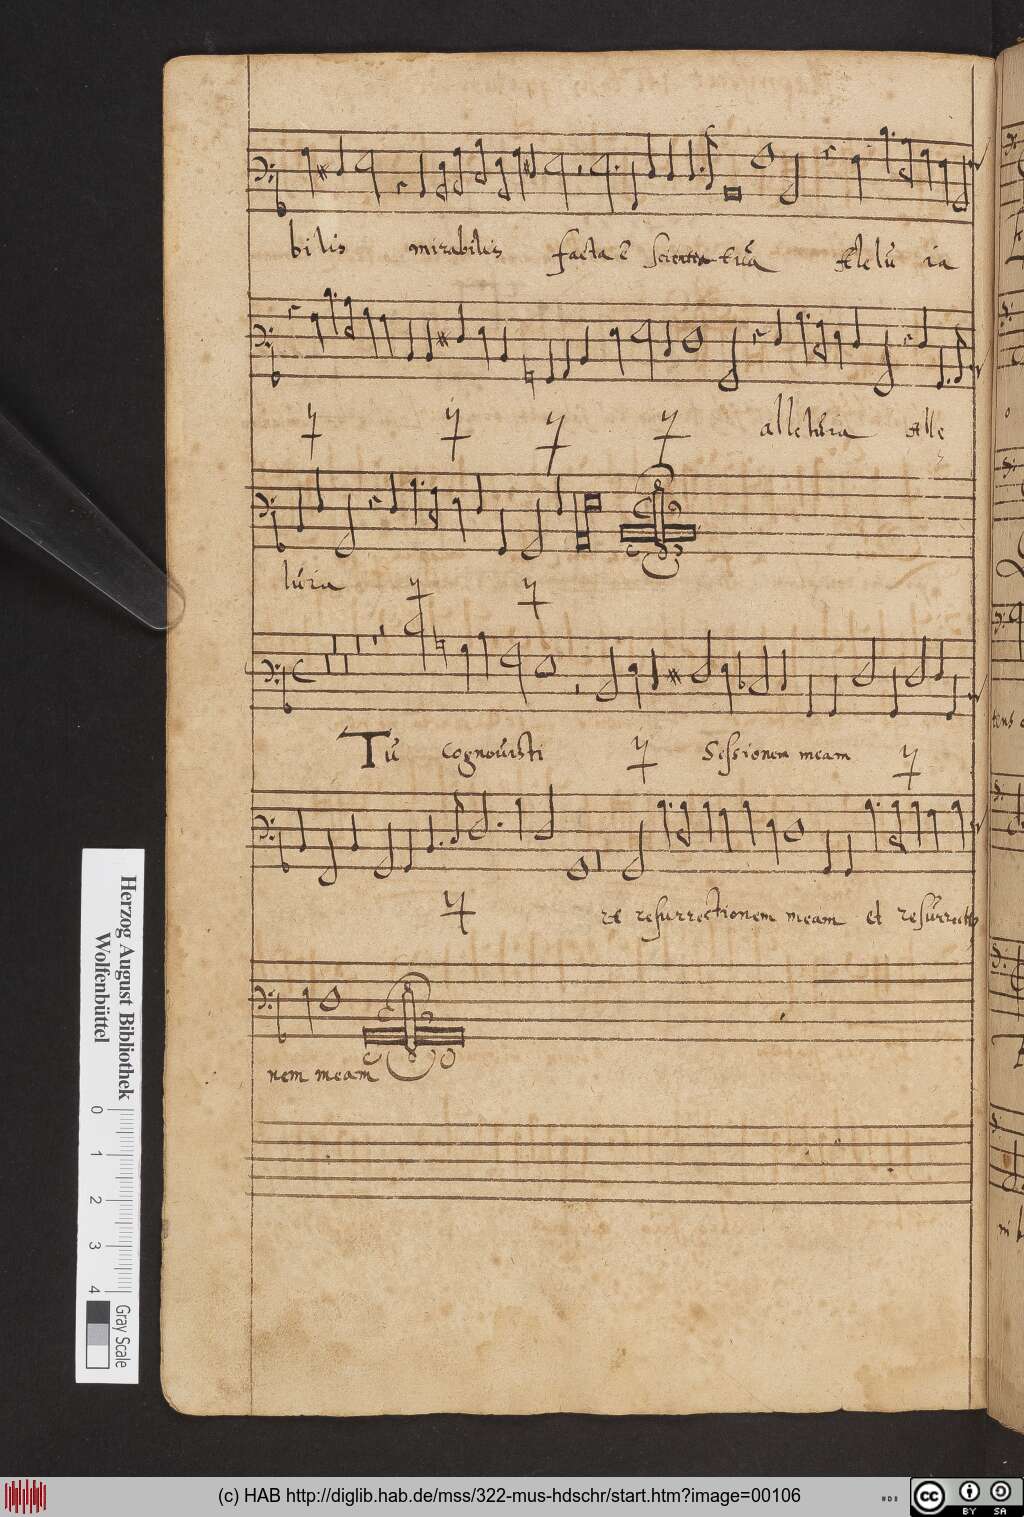 bilis mirabilis facta ē scientia tua Alelu ia
ij ij ij ij alleluia Alle
luia ij ij
Tu cognovisti ij Sessionem meam ij
ij et resurrectionem meam et resurrectio
nem meam
Herzog August Bibliothek
Wolfenbüttel
0 1 2 3 4
Gray Scale
(c) HAB http://diglib.hab.de/mss/322-mus-hdschr/start.htm?image=00106
cc BY SA